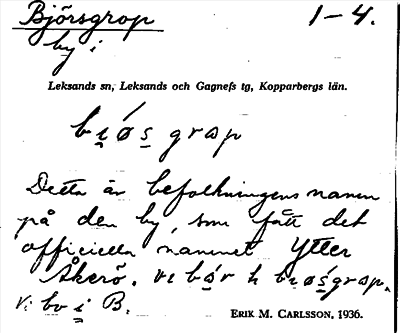 Björsgrop 1–4.
by i
Leksands sn, Leksands och Gagnefs tg, Kopparbergs län.
bi̯ǿs̱ grap
Detta är befolkningens namn
på den by, som fått det
officiella namnet Ytter
Åkerö. vɩ bór h bi̯ǿs̱grap.
Vi bo i B.
ERIK M. CARLSSON, 1936.